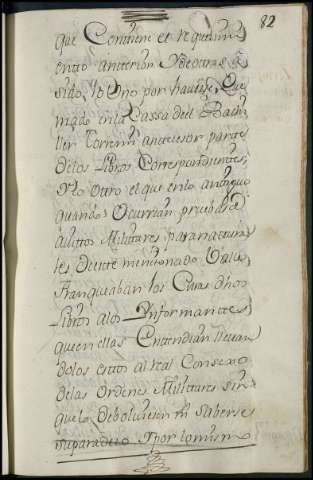 82
que Contiene el requerim
ento anterior y deotras a
sido, lo Uno por haverse Que
mado en la Cassa deel Bach
ller Torremi antecesor parte
delos Libros Correspondientes,
y lo otro el que enlo antiguo
quando Ocurrian pruebas d
avitos Militares paranatura
les deeste mencionado Valle
Franqueaban los Curas dhos
Libros alos Ynformantes
queen ellas Entendian llevan
dolos estos al real Consexo
delas Ordenes Militares sin
quelo debolviesen ni saberse
suparadero y por lo mism